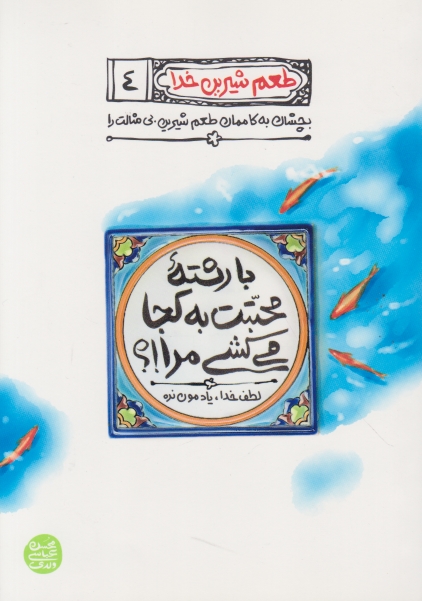 طعم شیرین خدا
٤
بچشان به کاممان طعم شیرین بی مثالت را
با رشتهٔ
محبّت به کجا
می کشی مرا!؟
لطف خدا، یادمون نره
محسن
عباسی
ولدی